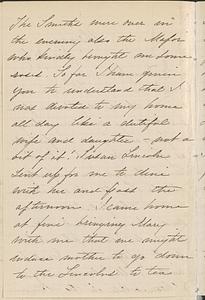 The Smiths were over in
the evening also the Major
who kindly brought me some
So far I have given
you to understand that I
was devoted to my home
all day like a dutiful
wife and daughter - not a
bit of it! Susan Lincoln
sent up for me to dine
with her and pass the
afternoon. I came home
at five bringing Mary
with me that she might
induce mother to go down
to the Lincolns to tea